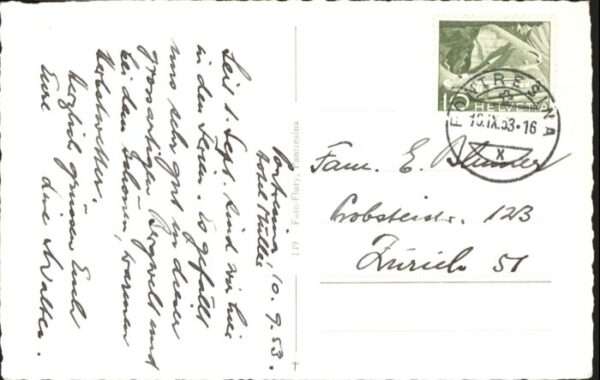 Pontresina, 10.9.53.
Hotel Müller
Seit 1. Sept. sind wir hier
in den Ferien. Es gefällt
uns sehr gut in dieser
grossartigen Bergwelt und
bei dem schönen, warmen
Herbstwetter.
Herzlich grüssen Euch
Eure und Walter.
119 Foto Flury, Pontresina
HELVETIA
PONTRESINA
10.IX.53-16
X
Fam. E. Blumer
Probsteistr. 123
Zürich 51